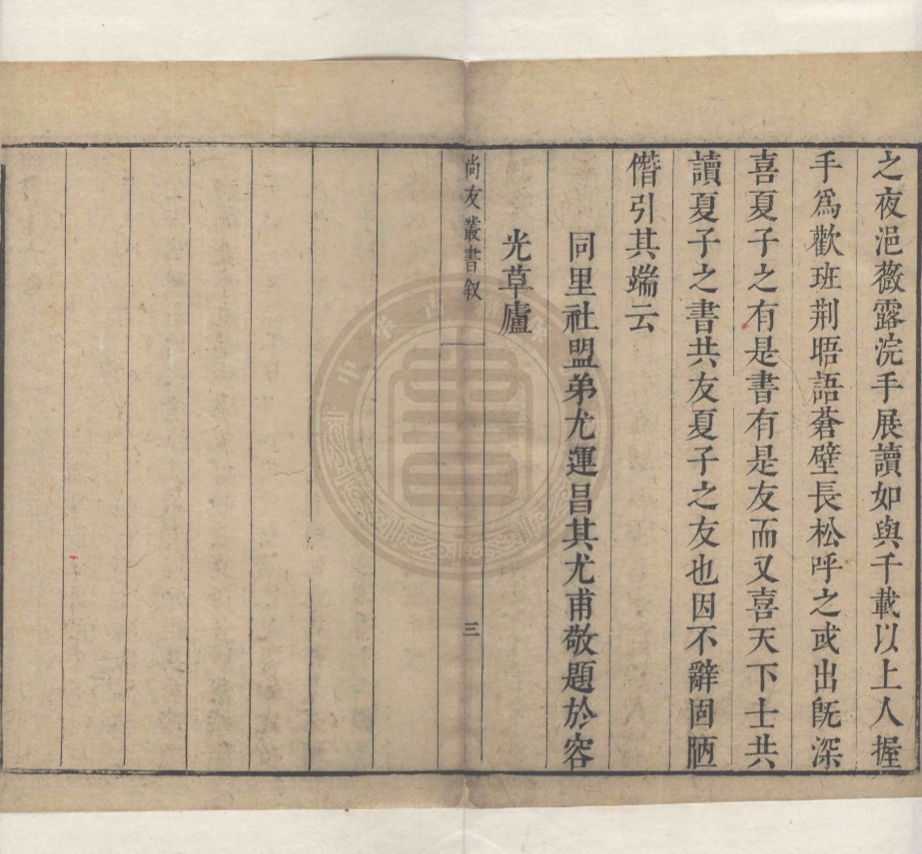 之夜浥薇露浣手展讀如與千載以上人握
手爲歡班荆晤語蒼壁長松呼之或出旣深
喜夏子之有是書有是友而又喜天下士共
讀夏子之書共友夏子之友也因不辭固陋
僭引其端云
同里社盟弟尤運昌其尤甫敬題於容
光草廬
尚友叢書叙
三